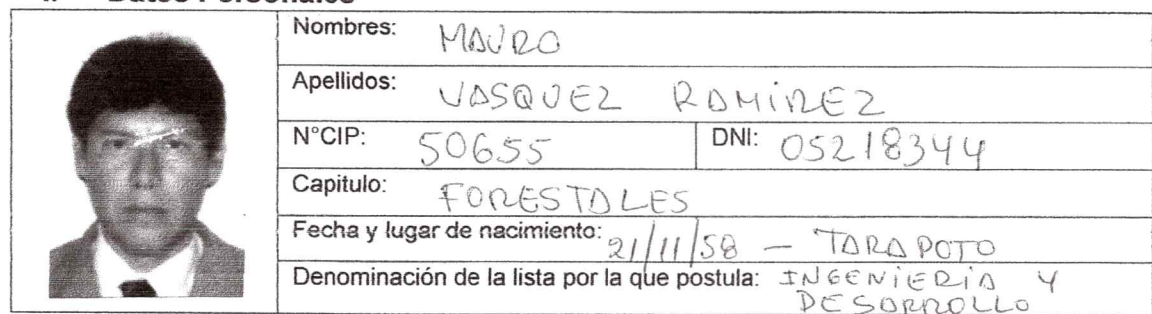 Datos Personales
Nombres: MAURO
Apellidos: VASQUEZ RAMIREZ
N°CIP: 50655 DNI: 05218344
Capitulo: FORESTALES
Fecha y lugar de nacimiento: 21/11/58 - TARAPOTO
Denominación de la lista por la que postula: INGENIERIA Y
DESARROLLO